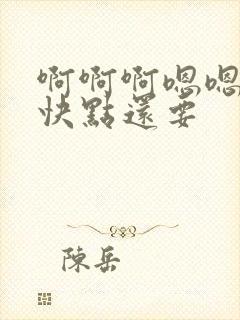 啊啊啊嗯嗯
快點還要
陳岳